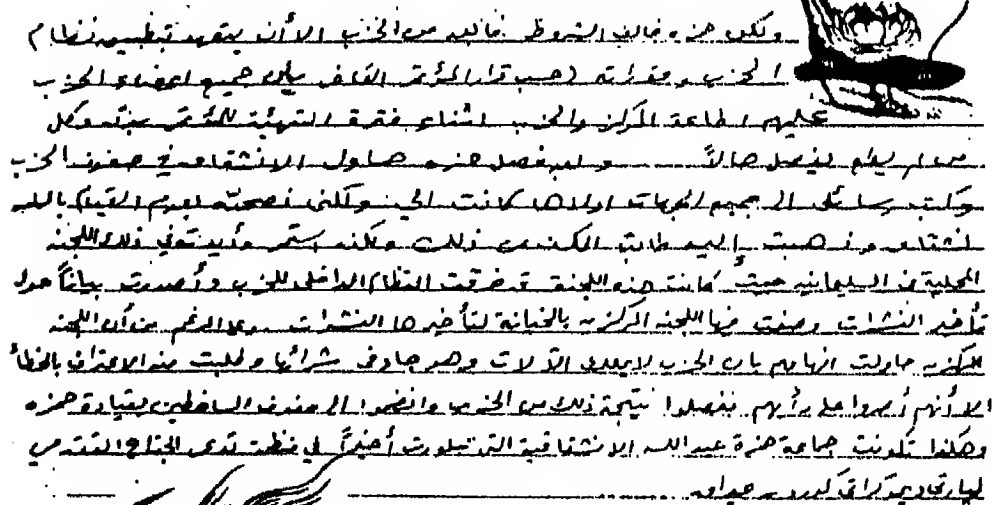 ولكن حمزه خالف الشروط فأبعد من الحزب الا أن يتعهد بتطبيق نظام
الحزب ومقرراته (حسب قرار المؤتمر القاضي بأن جميع اعضاء الحزب
عليهم اطاعة المركز والحزب اثناء فترة التهيئة للمؤتمر وكل
من لم يلتزم يفصل حالاً وبعد فصل حمزه حاول الانشقاق في صفوف الحزب
وكتب رسائل الى جميع الجهات اولاها كانت الي ولكني نصحته بعدم القيام بالـ
انشقاق وذهبت اليه طالباً الكف عن ذلك ولكنه استمر وأيدته في ذلك اللجنه
المحلية في السليمانيه حيث كانت هذه اللجنة قد خرقت النظام الداخلي للحزب وأصدرت بياناً حول
تأخير النشرات وصفت فيها اللجنه المركزيه بالخيانة لتأخيرها النشرات وعلى الرغم من أن اللجنه
المركزيه حاولت افهامهم بأن الحزب لايملك الآلات وهو جاد في شرائها وطلبت منه الاعتراف بالخطأ
الا أنهم أصروا على رأيهم ففصلوا نتيجة ذلك من الحزب وانضموا الى صفوف الساقطين بقيادة حمزه
وهكذا تكونت جماعة حمزة عبدالله الانشقاقية التي تبلورت أخيراً في منظمة تدعى الجناح التقدمي
لپارتى ديموكراتى كوردى عيراق